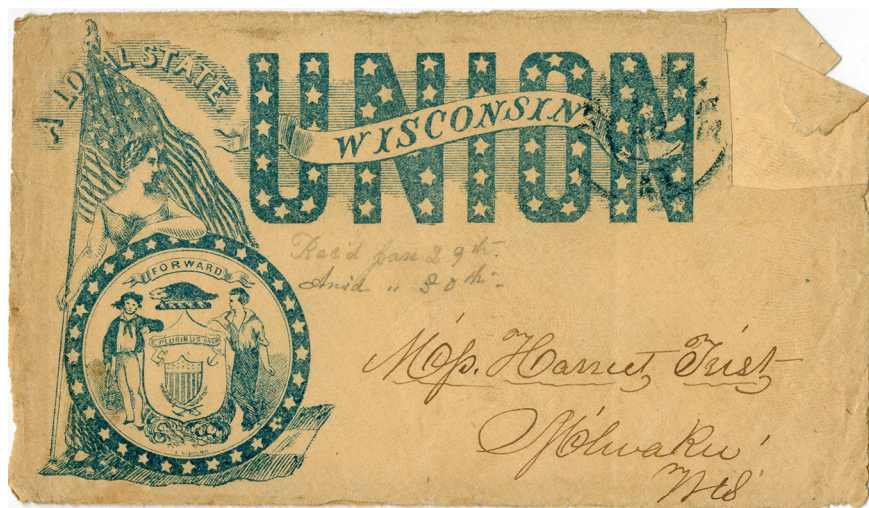 A LOYAL STATE.
UNION
WISCONSIN
FORWARD
E PLURIBUS UNUM
Rec'd Jan 29th.
Ans'd " 30th.
Miss. Harriet
Milwaukie
Wis